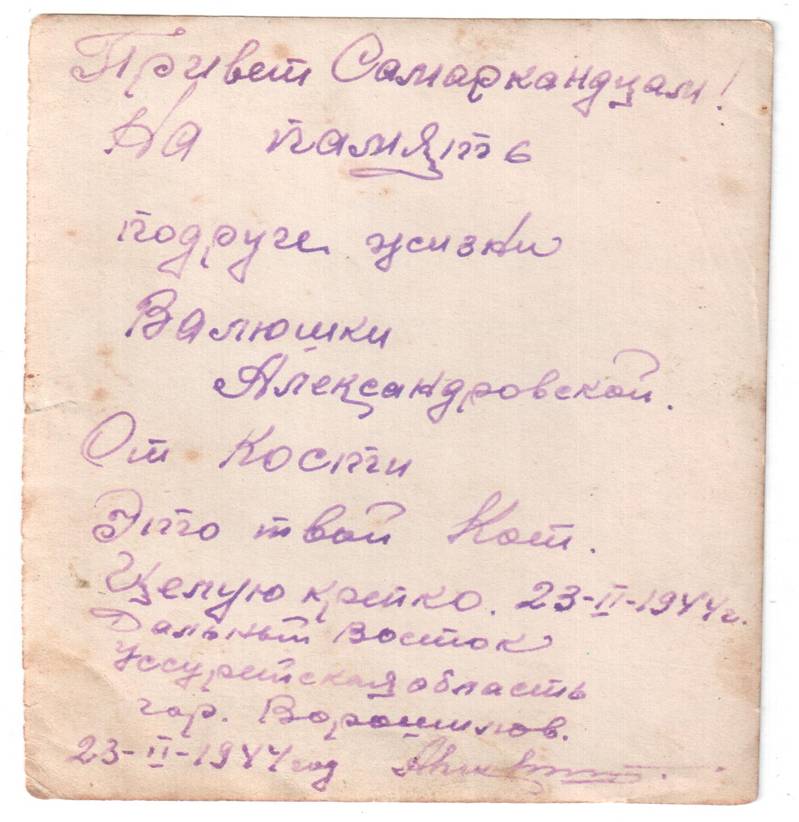 Привет Самаркандцам!
На память
подруге жизни
Валюшки
Александровской.
От Кости
Это твой Кот.
Целую крепко. 23-II-1944 г.
Дальный Восток
Уссурейская область
гор. Ворошилов.
23-II-1944 год